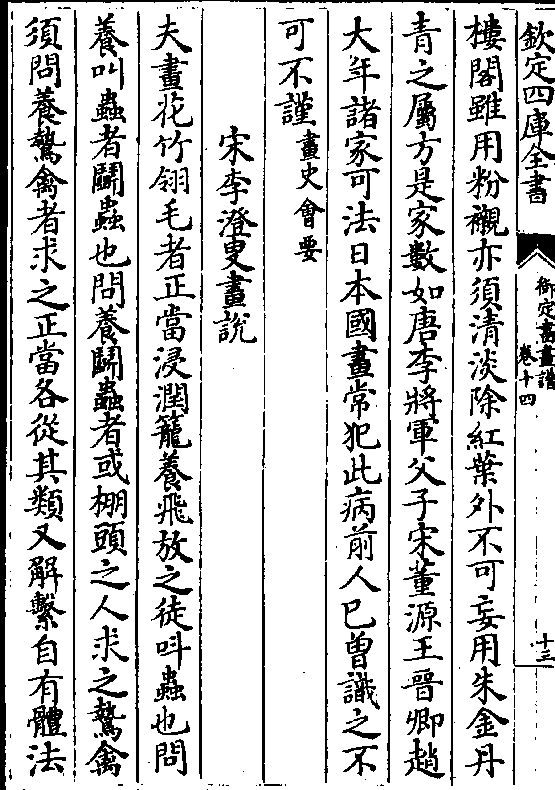 欽定四庫全書
御定書畫譜
卷十四
十三
樓閣雖用粉襯亦須清淡除紅葉外不可妄用朱金丹
青之屬方是家數如唐李將軍父子宋董源王晉卿趙
大年諸家可法日本國畫常犯此病前人已曽識之不
可不謹畫史會要
宋李澄叟畫說
夫畫花竹翎毛者正當浸潤籠養飛放之徒呌蟲也問
養叫蟲者鬭蟲也問養鬭蟲者或棚頭之人求之鷙禽
須問養鷙禽者求之正當各從其類又解繫自有體法